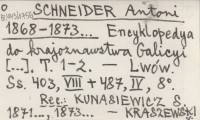 SCHNEIDER Antoni
1868-1873... Encyklopedya
do krajoznawstwa Galicyi
[...]. T. 1-2. — Lwów.
Ss. 403, VIII + 487, IV, 8°.
Rec.: KUNASIEWICZ S.
1871..., 1873... — KRASZEWSKI